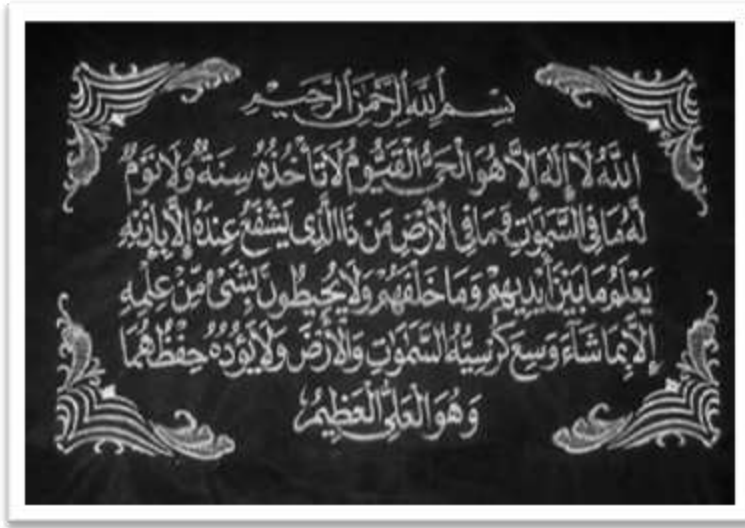 بِسْمِ اللَّهِ الرَّحْمَٰنِ الرَّحِيمِ
اللَّهُ لَا إِلَٰهَ إِلَّا هُوَ الْحَيُّ الْقَيُّومُ لَا تَأْخُذُهُ سِنَةٌ وَلَا نَوْمٌ
لَهُ مَا فِي السَّمَٰوَاتِ وَمَا فِي الْأَرْضِ مَنْ ذَا الَّذِي يَشْفَعُ عِنْدَهُ إِلَّا بِإِذْنِهِ
يَعْلَمُ مَا بَيْنَ أَيْدِيهِمْ وَمَا خَلْفَهُمْ وَلَا يُحِيطُونَ بِشَيْءٍ مِنْ عِلْمِهِ
إِلَّا بِمَا شَاءَ وَسِعَ كُرْسِيُّهُ السَّمَٰوَاتِ وَالْأَرْضَ وَلَا يَؤُدُهُ حِفْظُهُمَا
وَهُوَ الْعَلِيُّ الْعَظِيمُ